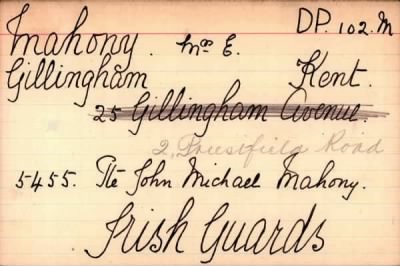 DP. 102. M
Mahony. Mrs E.
Gillingham Kent.
25 Gillingham Avenue.
2, Priestfield Road
5455. Pte John Michael Mahony.
Irish Guards